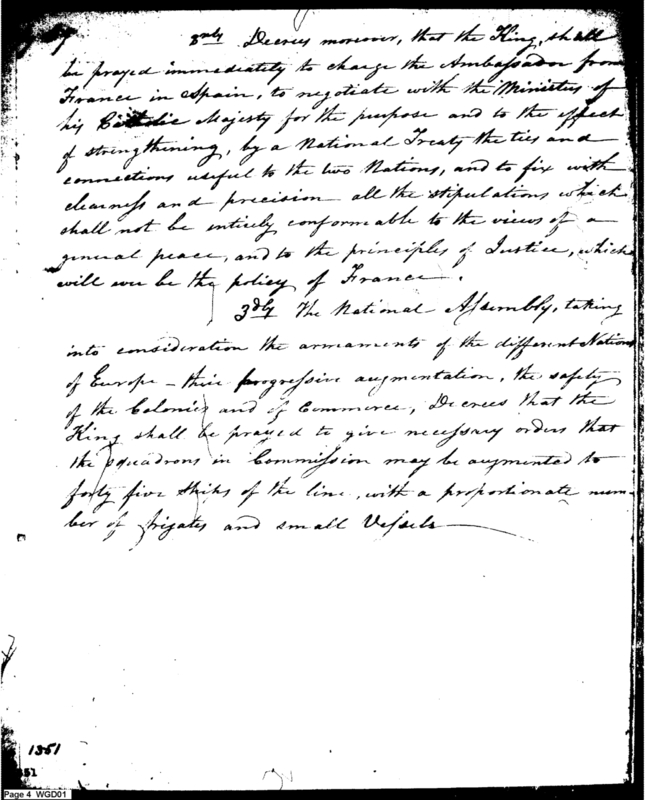 2nly Decrees moreover, that the King, shall
be prayed immediately to charge the Ambassador from
France in Spain, to negotiate with the Ministers of
his Catholic Majesty for the purpose and to the effect
of strengthining, by a National Treaty the ties and
connections useful to the two Nations, and to fix with
clearness and precision all the stipulations which
shall not be entirely conformable to the views of a
general peace, and to the principles of Justice, which
will ever be the policy of France.
3dly The National Assembly, taking
into consideration the armaments of the different Nations
of Europe - their progressive augmentation, the safety
of the Colonies and of Commerce, Decrees that the
King shall be prayed to give necessary orders that
the squadrons in Commission may be augmented to
forty five Ships of the line, with a proportionate num-
ber of frigates and small Vessels
1351
351
Page 4 WGD01